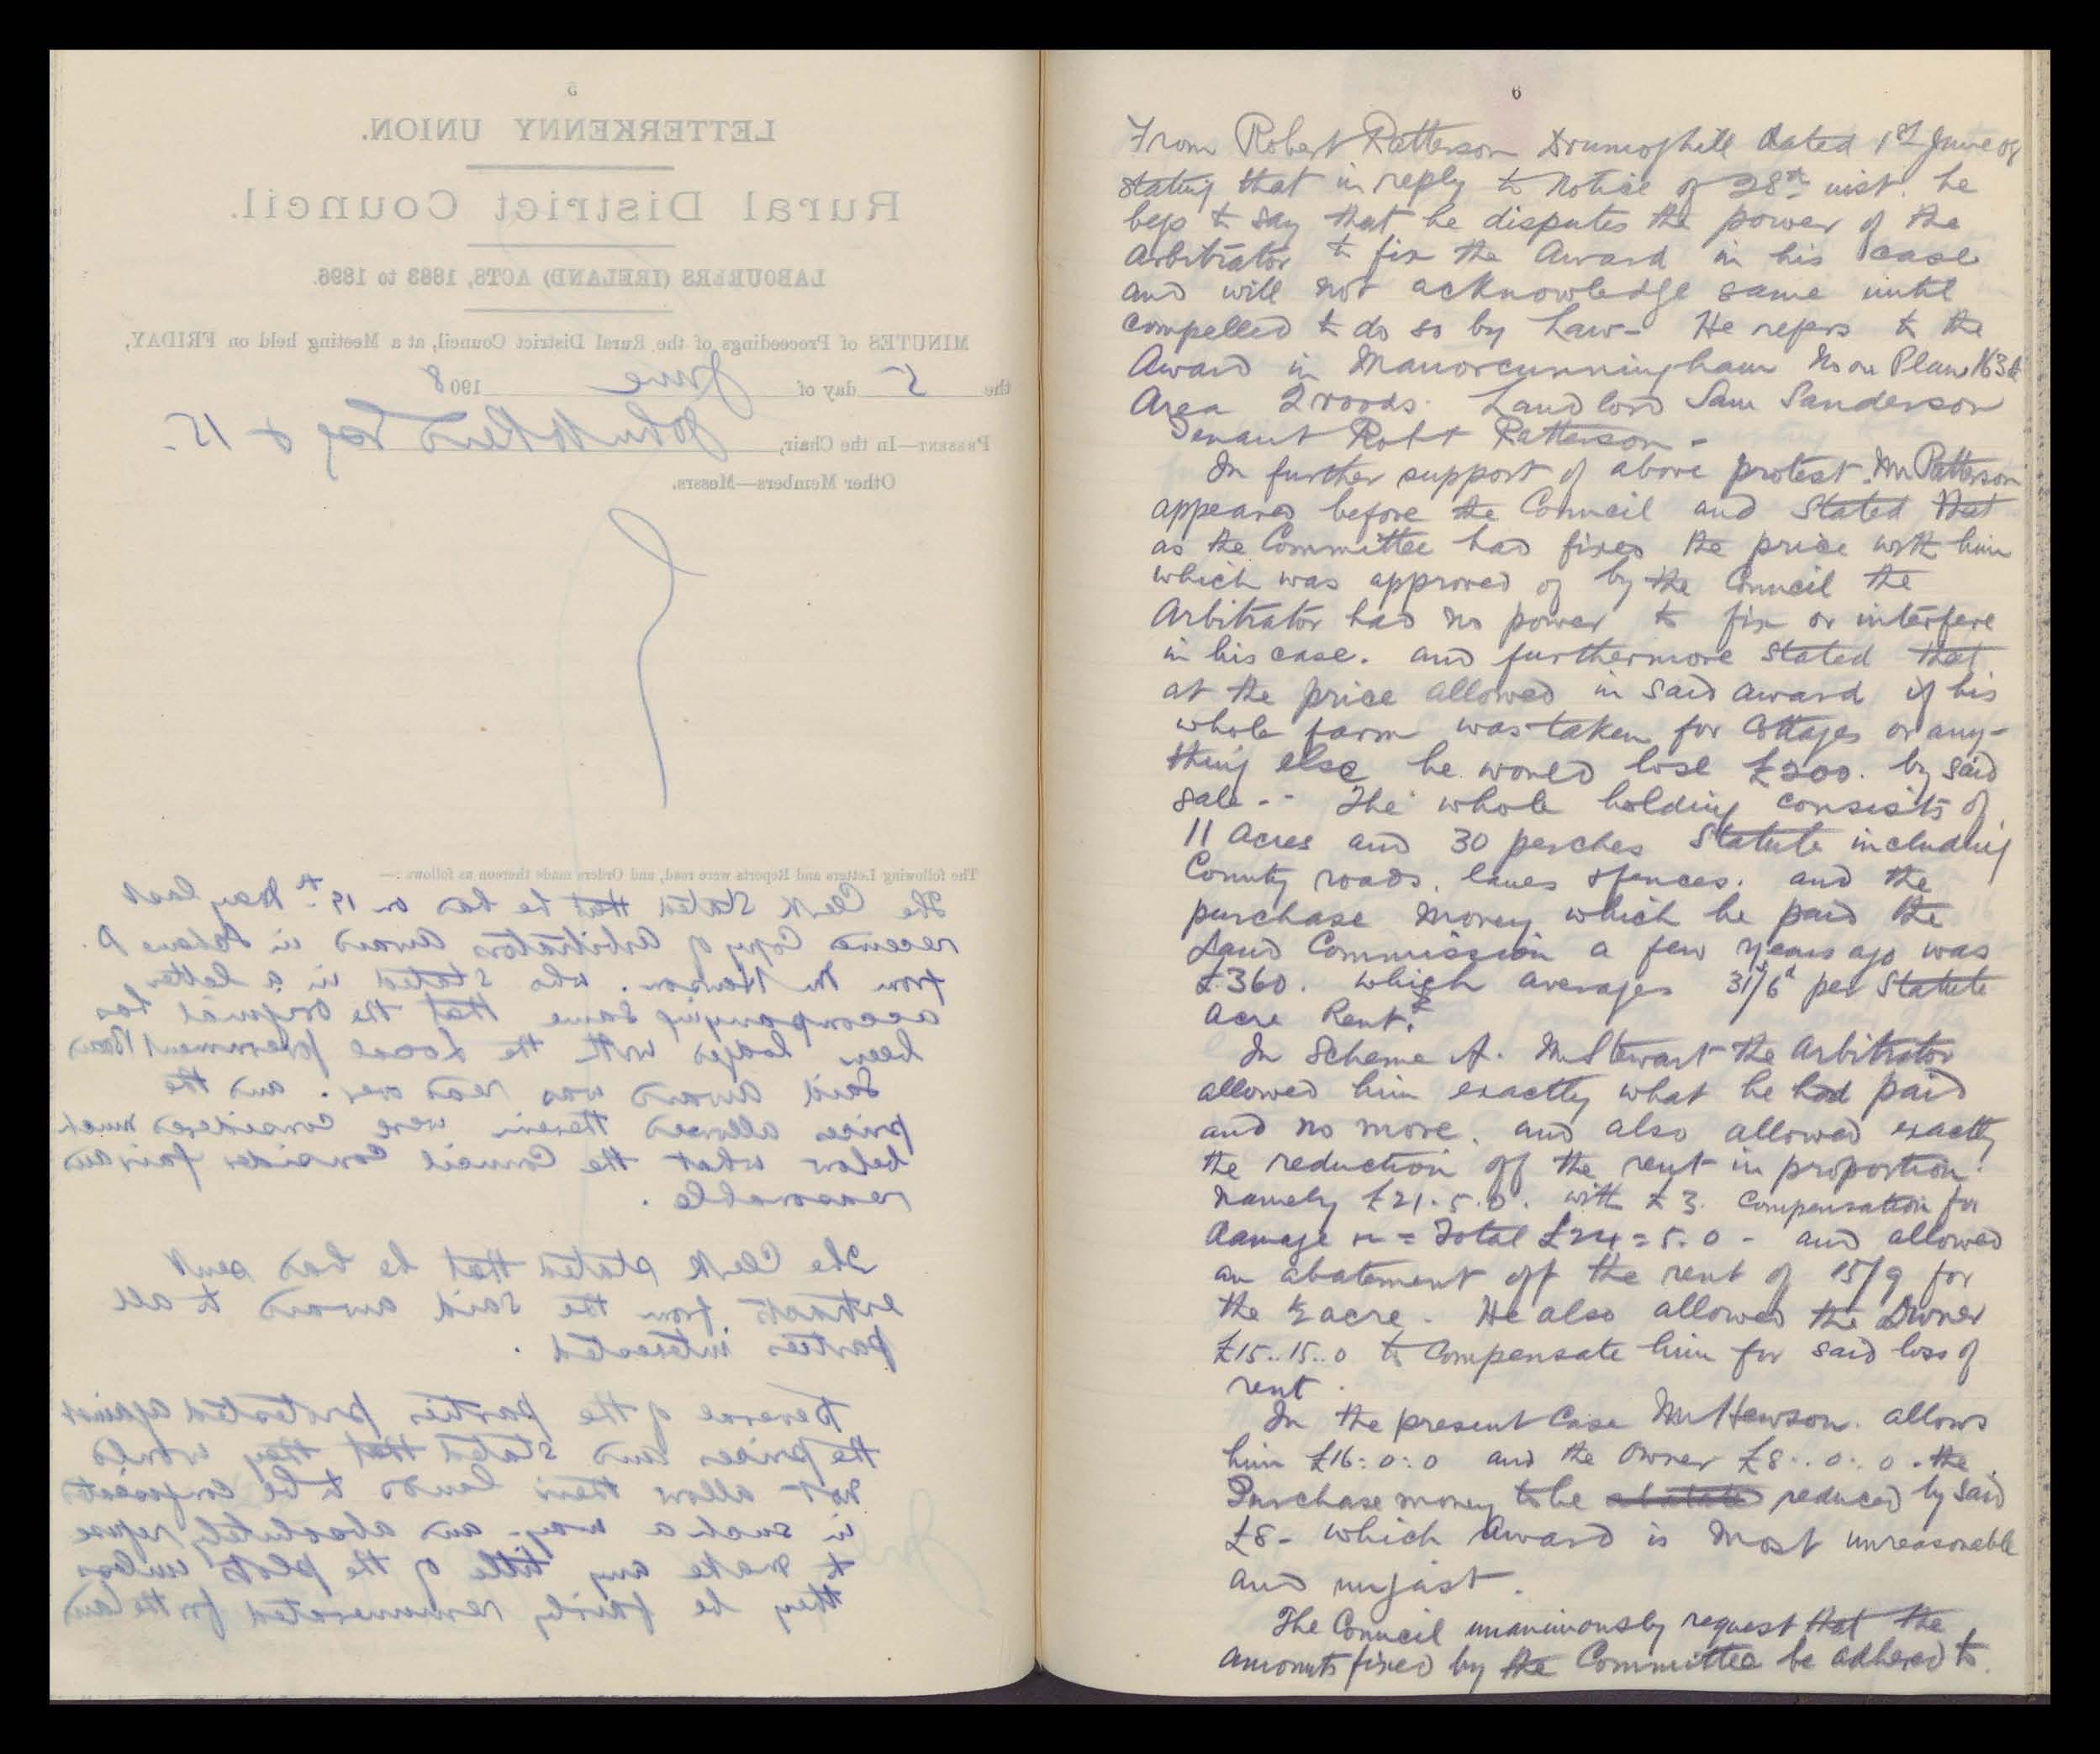 5
LETTERKENNY UNION.
Rural District Council.
LABOURERS (IRELAND) ACTS, 1883 to 1896.
MINUTES of Proceedings of the Rural District Council, at a Meeting held on FRIDAY,
the 5 day of June 1908
PRESENT—In the Chair, John Esq & 15.
Other Members—Messrs.
The following Letters and Reports were read, and Orders made thereon as follows :—
The Clerk stated that he has on 19th May last
received Copy of Arbitrators award in Scheme
from Mr Hewson. who stated in a letter
accompanying same that the original has
been lodged with the Local Government Board
Said award was read over. and the
prices allowed therein were considered much
below what the Council consider fair and
reasonable.
The Clerk stated that he has sent
extracts from the said award to all
parties interested.
Several of the parties protested against
the prices and stated that they would
not allow their lands to be confiscated
in such a way and absolutely refuse
to make any title of the plots unless
they be fairly remunerated for the land
6
From Robert Patterson Drumoghill dated 1st June 08
stating that in reply to Notice of 28th inst. he
begs to say that he disputes the power of the
Arbitrator to fix the Award in his case
and will not acknowledge same until
compelled to do so by Law - He refers to the
Award in Manorcunningham No on Plan 163
Area 2 roods. Landlord Sam Sanderson
Tenant Robt Patterson -
In further support of above protest. Mr Patterson
appeared before the Council and Stated that
as the Committee had fixed the price with him
which was approved of by the Council the
Arbitrator had no power to fix or interfere
in his case. and furthermore stated that
at the price allowed in said award if his
whole farm was taken for Cottages or any-
thing else he would lose £200. by said
sale -- The whole holding consists of
11 Acres and 30 perches Statute including
County roads, lanes & fences. and the
purchase money which he paid the
Land Commission a few years ago was
£360. which averages 31s/6d per Statute
Acre Rent.
In Scheme A. Mr Stewart the Arbitrator
allowed him exactly what he had paid
and no more. and also allowed exactly
the reduction off the rent in proportion.
Namely £21.5.0. with £3. Compensation for
damage = Total £24=5.0 - and allowed
an abatement off the rent of 15/9 for
the ½ acre. He also allowed the Owner
£15..15..0 to Compensate him for said loss of
rent.
In the present Case Mr Hewson. allows
him £16:0:0 and the Owner £8..0..0. the
Purchase money to be reduced by said
£8 - which Award is most unreasonable
and unjust.
The Council unanimously request that the
amounts fixed by the Committee be adhered to.